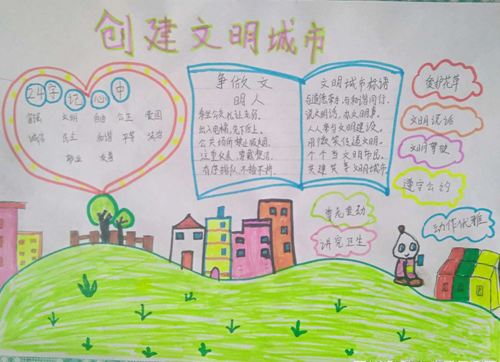 创建文明城市
24字记心中
富强 文明 自由 公正 爱国
诚信 民主 和谐 平等 法治
敬业 友善
争做文
明人
乘坐公交礼让友
出入电梯先下后上
公共场所禁止吸烟
注重仪表 穿戴整洁
有序排队 不拾不抢
文明城市标语
与道德牵手与和谐同行
说文明话 做文明事
人人参与文明建设
用微笑传递文明
个个当文明市民
共建美丽文明城市
爱护花草
文明说话
文明驾驶
遵守公约
动作优雅
李先生动
讲究卫生